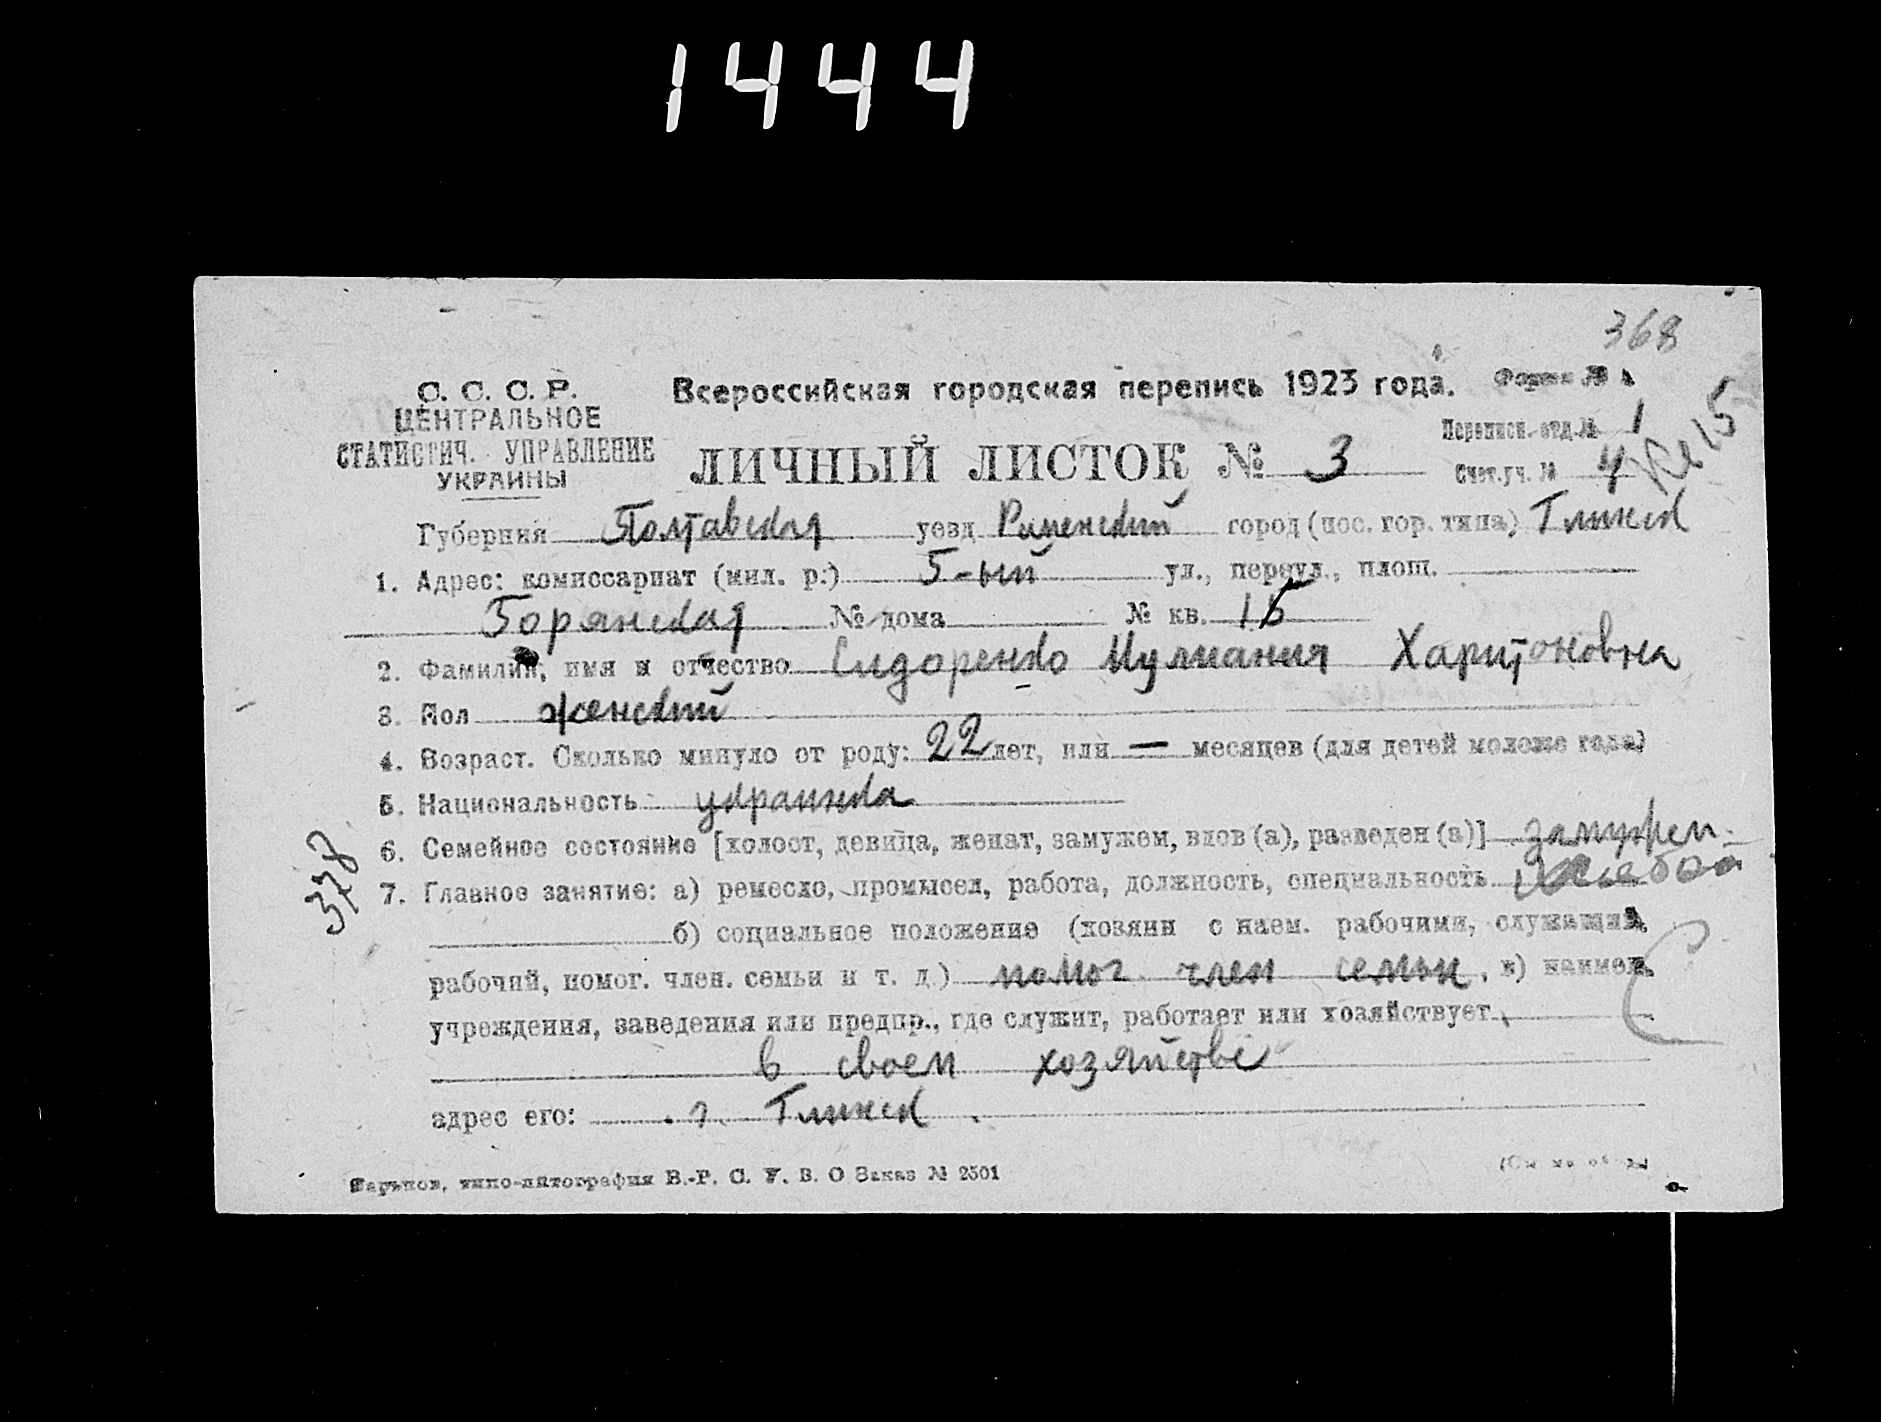 1444
368
С. С. С. Р.
ЦЕНТРАЛЬНОЕ
СТАТИСТИЧ. УПРАВЛЕНИЕ
УКРАИНЫ
Всероссийская городская перепись 1923 года.
Форма №
ЛИЧНЫЙ ЛИСТОК № 3
Переписн. отд. № 1
Счет. уч. № 4
Губерния Полтавская уезд Роменский город (пос. гор. типа) Глинск
1. Адрес: комиссариат (мил. р.) 5-ый ул., переул., площ.
Борянская № дома № кв. 15
2. Фамилия, имя и отчество Сидоренко Иулиания Харитоновна
3. Пол женский
4. Возраст. Сколько минуло от роду: 22 лет, или — месяцев (для детей моложе года)
5. Национальность украинка
6. Семейное состояние [холост, девица, женат, замужем, вдов (а), разведен (а)] замужем
378
7. Главное занятие: а) ремесло, промысел, работа, должность, специальность
б) социальное положение (хозяин с наем. рабочими, служащий,
рабочий, помог. член. семьи и т. д.) помог. член семьи, в) наимен.
учреждения, заведения или предпр., где служит, работает или хозяйствует
в своем хозяйстве
адрес его: г. Глинск
Харьков, типо-литография В.-Р. С. У. В. О Заказ № 2501